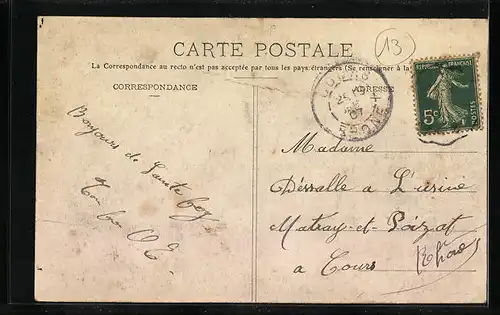 CARTE POSTALE
13
La Correspondance au recto n'est pas acceptée par tous les pays étrangers (Se renseigner à la
CORRESPONDANCE
ADRESSE
RHONE
07
RÉPUBLIQUE FRANÇAISE
5c
POSTES
Bonjours de Sainte
Ton
Madame
Déssalle a L'usine
Matray-et-Poizat
a Cours
Rhône